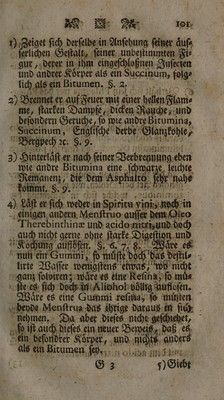 101
1) Zeiget sich derselbe in Ansehung seiner äus-
serlichen Gestalt, seiner unbestimmten Fi-
gur, derer in ihm eingeschloßnen Insecten
und andrer Körper als ein Succinum, folg-
lich als ein Bitumen. §. 2.
2) Brennet er auf Feuer mit einer hellen Flam-
me, starken Dampfe, dicken Rauche, und
besondern Geruche, so wie andre Bitumina,
Succinum, Englische derbe Glanzkohle,
Bergpech ꝛc. §. 9.
3) Hinterläst er nach seiner Verbrennung eben
wie andre Bitumina eine schwarze leichte
Remanenz, die dem Asphalto sehr nahe
kommt. §. 9.
4) Läst er sich weder in Spiritu vini, noch in
einigen andern Menstruo ausser dem Oleo
Therebinthinæ und acido nitri, und doch
auch nicht gerne ohne starke Digestion und
Kochung auflösen. §. 6. 7. 8. Wäre es
nun ein Gummi, so müste doch das destil-
lirte Wasser wenigstens etwas, wo nicht
ganz solviren; wäre es eine Resina, so mü-
ste es sich doch in Alcohol völlig auflösen.
Wäre es eine Gummi resina, so müsten
beyde Menstrua das ihrige daraus in sich
nehmen. Da aber dieses nicht geschiehet,
so ist auch dieses ein neuer Beweis, daß es
ein besondrer Körper, und nichts anders
als ein Bitumen sey.
G 3 5) Giebt